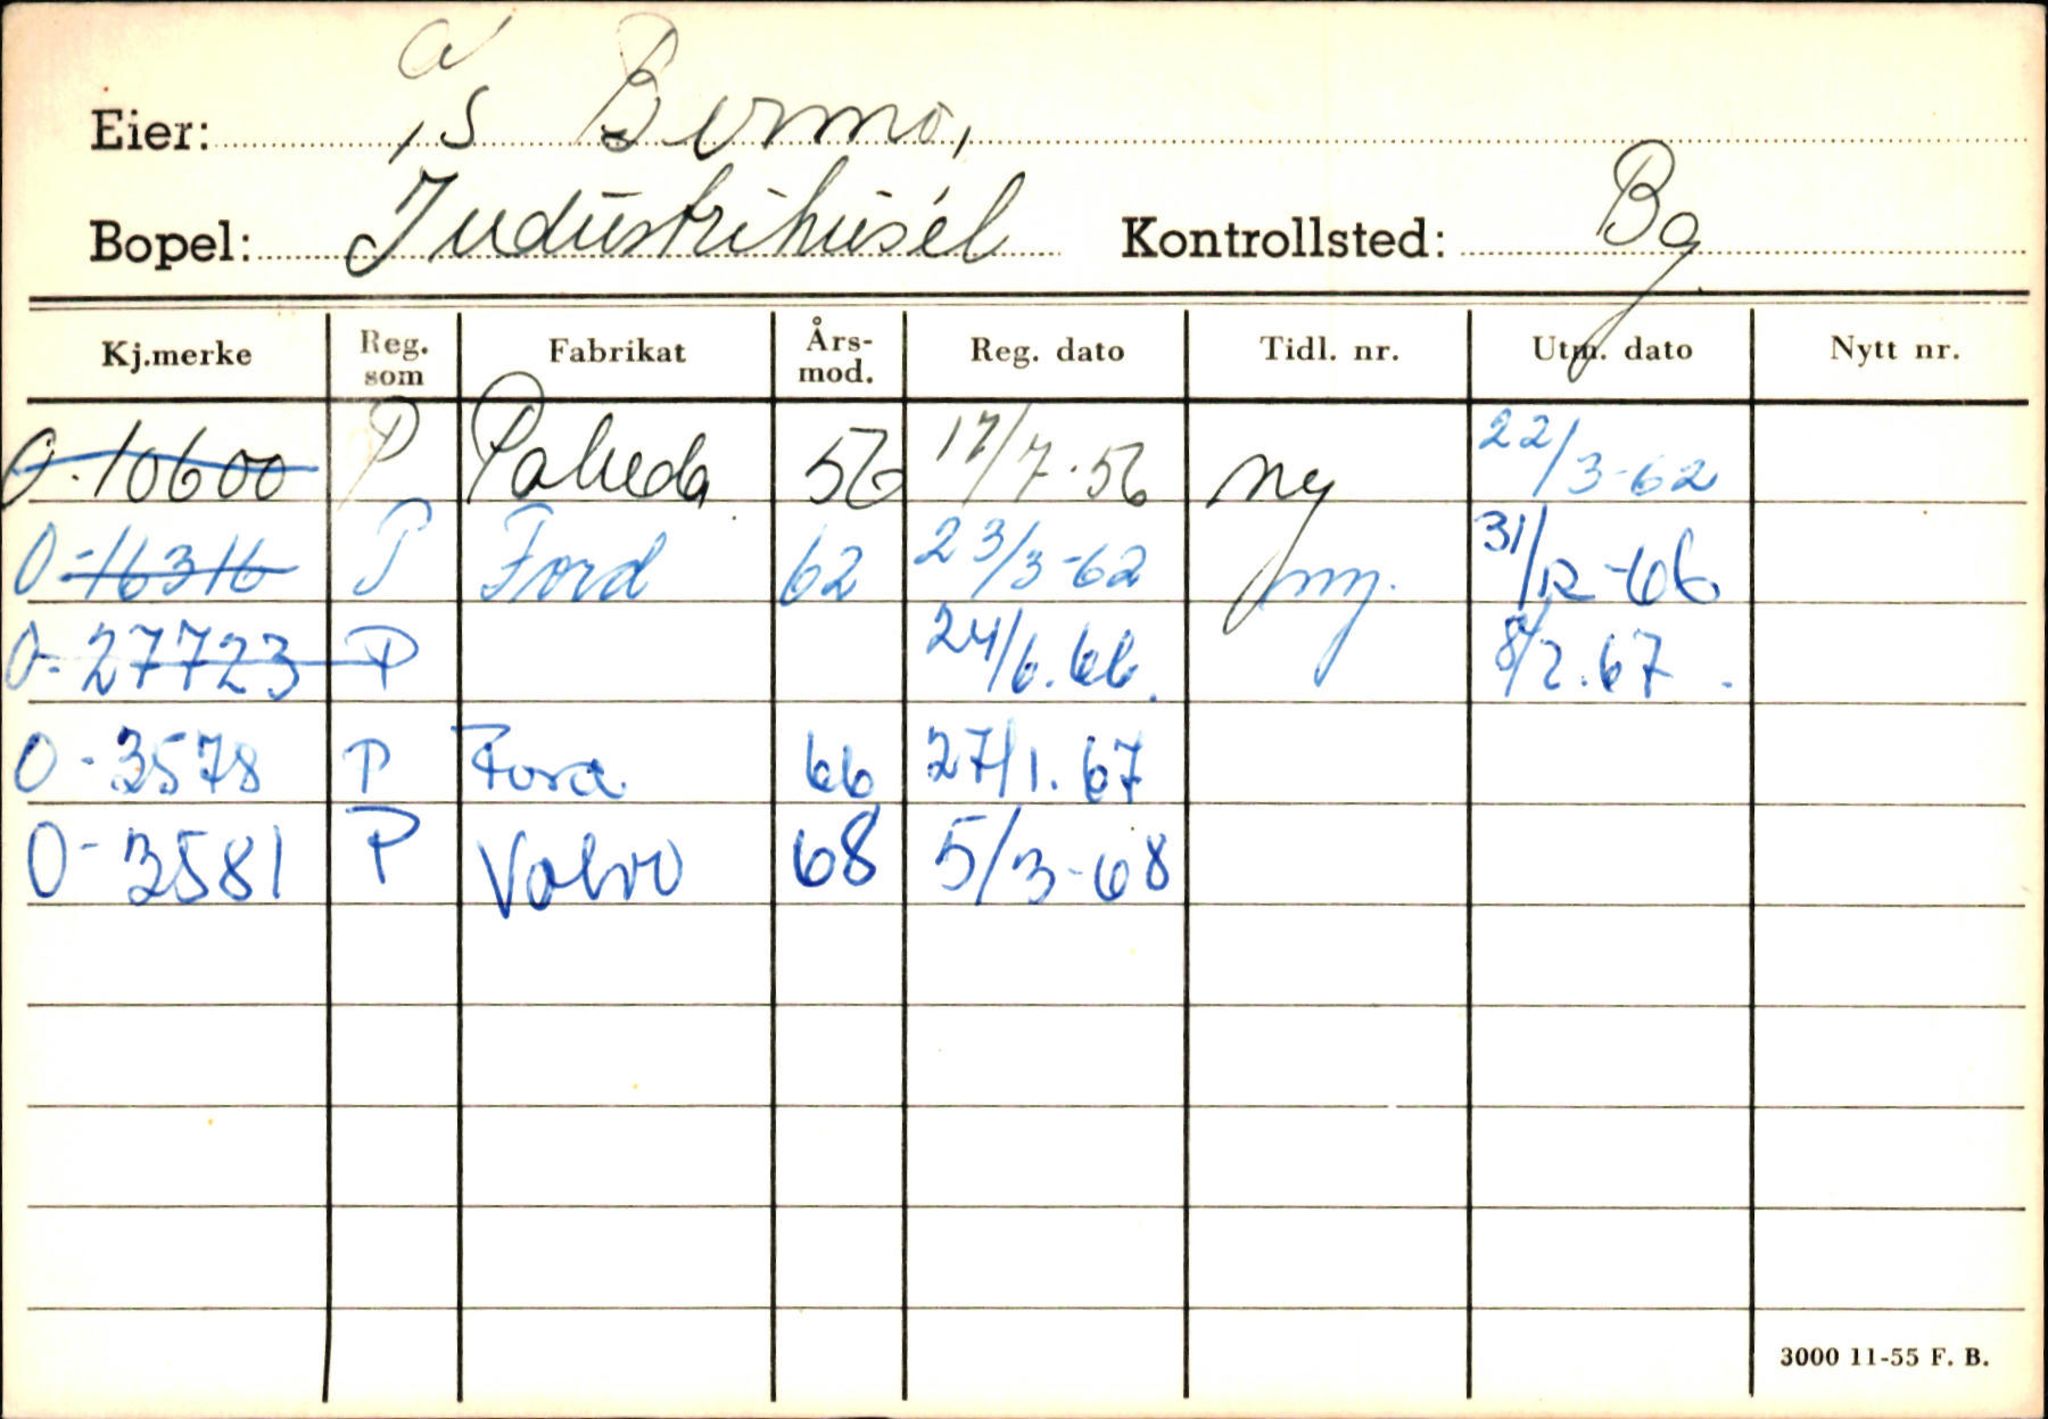 Eier: A/S Bermo,
Bopel: Industrihuset Kontrollsted: Bg.
Kj.merke Reg. som Fabrikat Års-mod. Reg. dato Tidl. nr. Utm. dato Nytt nr.
O-10600 P Pobeda 56 17/7-56 ny 22/3-62
O-16316 P Ford 62 23/3-62 ny. 31/12-66
O-27723 P 24/6.66. 8/2.67.
O-3578 P Ford 66 27/1.67
O-3581 P Volvo 68 5/3-68
3000 11-55 F. B.